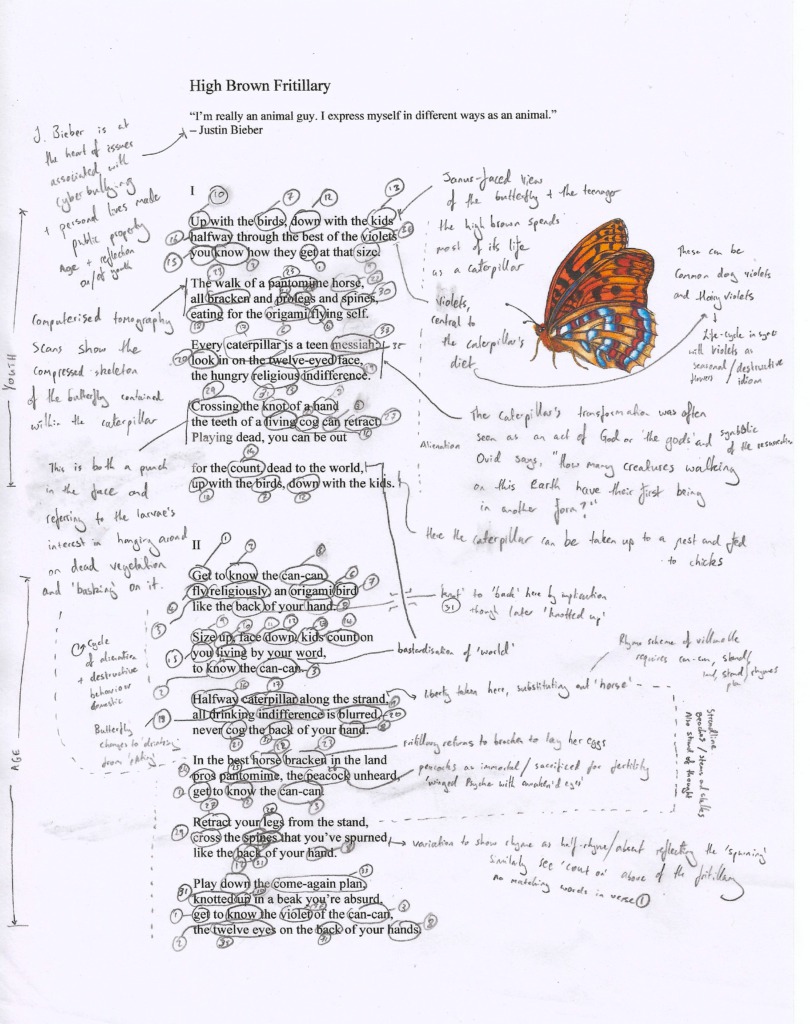 High Brown Fritillary
"I'm really an animal guy. I express myself in different ways as an animal."
– Justin Bieber
J. Bieber is at
the heart of issues
associated with
cyberbullying
+ personal lives made
public property
Age + reflection
on/of youth
I
Up with the birds, down with the kids
halfway through the best of the violets
you know how they get at that size.
The walk of a pantomime horse,
all bracken and prolegs and spines,
eating for the origami flying self.
Every caterpillar is a teen messiah:
look in on the twelve-eyed face,
the hungry religious indifference.
Crossing the knot of a hand
the teeth of a living cog can retract.
Playing dead, you can be out
for the count, dead to the world,
up with the birds, down with the kids.
Janus-faced view
of the butterfly + the teenager
the high brown spends
most of its life
as a caterpillar
Violets,
central to
the caterpillar's
diet
These can be
common dog violets
and
violets
Life-cycle in sync
with violets as
seasonal / destructive
flowers
idiom
YOUTH
computerised tomography
scans show the
compressed skeleton
of the butterfly contained
within the caterpillar
This is both a punch
in the face and
referring to the larvae's
interest in hanging around
on dead vegetation
and 'basking' on it.
Alienation
The caterpillar's transformation was often
seen as an act of God or the gods and symbolic
of the resurrection
Ovid says, "How many creatures walking
on this Earth have their first being
in another form?"
Here the caterpillar can be taken up to a nest and fed
to chicks
II
Get to know the can-can,
fly religiously, an origami bird
like the back of your hand.
Size up, face down, kids count on
you living by your word,
to know the can-can.
Halfway caterpillar along the strand,
all drinking indifference is blurred,
never cog the back of your hand.
In the best horse bracken in the land
pros pantomime, the peacock unheard,
get to know the can-can.
Retract your legs from the stand,
cross the spines that you've spurned,
like the back of your hand.
Play down the come-again plan,
knotted up in a beak you're absurd,
get to know the violet of the can-can,
the twelve eyes on the back of your hands.
'back' here by implication
though later 'knotted up'
bastardisation of 'world'
Rhyme scheme of villanelle
requires can-can, strand,
land, stand / rhymes
plan
liberty taken here, substituting out 'horse'
fritillary returns to bracken to lay her eggs
peacocks as immortal / sacrificed for fertility
'winged Psyche with awaken'd eyes'
variation to show rhyme as half-rhyme / absent reflecting the 'spurning'
Similarly see 'count on' above of the fritillary
no matching words in verse 1
Cycle
of alienation
+ destructive
behaviour
domestic
Butterfly
changes to drinking
from 'eating'
AGE
Strandline
beaches / stems and stalks
Also strand of thought